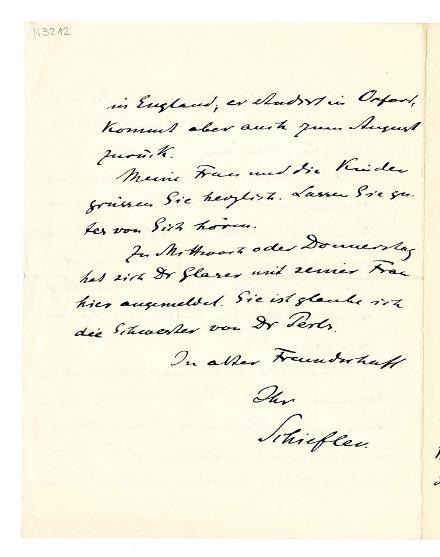 K3212
in England, er studirt in Oxford,
kommt aber auch zum August
zurück.
Meine Frau und die Kinder
grüssen Sie herzlich. Lassen Sie gu-
tes von Sich hören.
Zu Mittwoch oder Donnerstag
hat sich Dr Glaser mit seiner Frau
hier angemeldet. Sie ist glaube ich
die Schwester von Dr Perls.
In alter Freundschaft
Ihr
Schiefler.